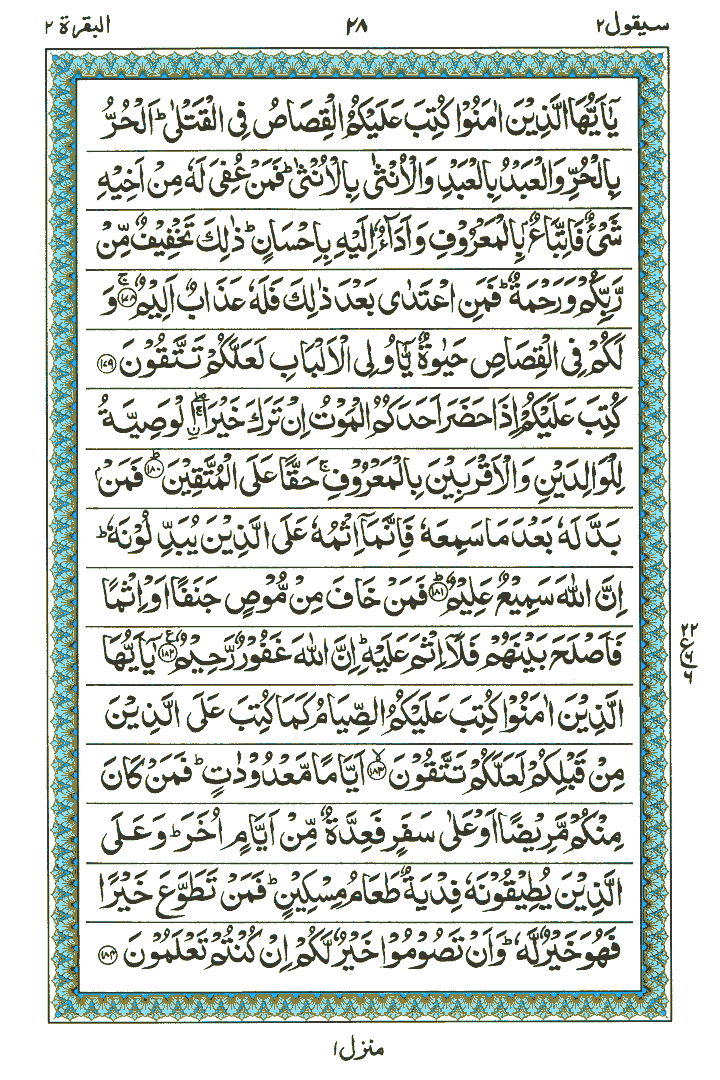 سيقول٢ ٢٨ البقرة ٢
يٰۤاَيُّهَا الَّذِيْنَ اٰمَنُوْا كُتِبَ عَلَيْكُمُ الْقِصَاصُ فِى الْقَتْلٰىؕ اَلْحُرُّ
بِالْحُرِّ وَالْعَبْدُ بِالْعَبْدِ وَالْاُنْثٰى بِالْاُنْثٰىؕ فَمَنْ عُفِىَ لَهٗ مِنْ اَخِيْهِ
شَىْءٌ فَاتِّبَاعٌۢ بِالْمَعْرُوْفِ وَاَدَآءٌ اِلَيْهِ بِاِحْسَانٍؕ ذٰلِكَ تَخْفِيْفٌ مِّنْ
رَّبِّكُمْ وَرَحْمَةٌؕ فَمَنِ اعْتَدٰى بَعْدَ ذٰلِكَ فَلَهٗ عَذَابٌ اَلِيْمٌۚ‏﴿١٧٨﴾ وَ
لَكُمْ فِى الْقِصَاصِ حَيٰوةٌ يّٰۤاُولِى الْاَلْبَابِ لَعَلَّكُمْ تَتَّقُوْنَ ﴿١٧٩﴾
كُتِبَ عَلَيْكُمْ اِذَا حَضَرَ اَحَدَكُمُ الْمَوْتُ اِنْ تَرَكَ خَيْرَا ۖۚ اۨلْوَصِيَّةُ
لِلْوَالِدَيْنِ وَالْاَقْرَبِيْنَ بِالْمَعْرُوْفِۚ حَقًّا عَلَى الْمُتَّقِيْنَؕ ﴿١٨٠﴾ فَمَنْۢ
بَدَّلَهٗ بَعْدَ مَا سَمِعَهٗ فَاِنَّمَاۤ اِثْمُهٗ عَلَى الَّذِيْنَ يُبَدِّلُوْنَهٗؕ
اِنَّ اللّٰهَ سَمِيْعٌ عَلِيْمٌؕ ﴿١٨١﴾ فَمَنْ خَافَ مِنْ مُّوْصٍ جَنَفًا اَوْ اِثْمًا
فَاَصْلَحَ بَيْنَهُمْ فَلَاۤ اِثْمَ عَلَيْهِؕ اِنَّ اللّٰهَ غَفُوْرٌ رَّحِيْمٌ ﴿١٨٢﴾ع يٰۤاَيُّهَا
الَّذِيْنَ اٰمَنُوْا كُتِبَ عَلَيْكُمُ الصِّيَامُ كَمَا كُتِبَ عَلَى الَّذِيْنَ
مِنْ قَبْلِكُمْ لَعَلَّكُمْ تَتَّقُوْنَۙ ﴿١٨٣﴾ اَيَّامًا مَّعْدُوْدٰتٍؕ فَمَنْ كَانَ
مِنْكُمْ مَّرِيْضًا اَوْ عَلٰى سَفَرٍ فَعِدَّةٌ مِّنْ اَيَّامٍ اُخَرَؕ وَعَلَى
الَّذِيْنَ يُطِيْقُوْنَهٗ فِدْيَةٌ طَعَامُ مِسْكِيْنٍؕ فَمَنْ تَطَوَّعَ خَيْرًا
فَهُوَ خَيْرٌ لَّهٗؕ وَاَنْ تَصُوْمُوْا خَيْرٌ لَّكُمْ اِنْ كُنْتُمْ تَعْلَمُوْنَ ﴿١٨٤﴾
٢٢
ع ٦
٦
منزل١